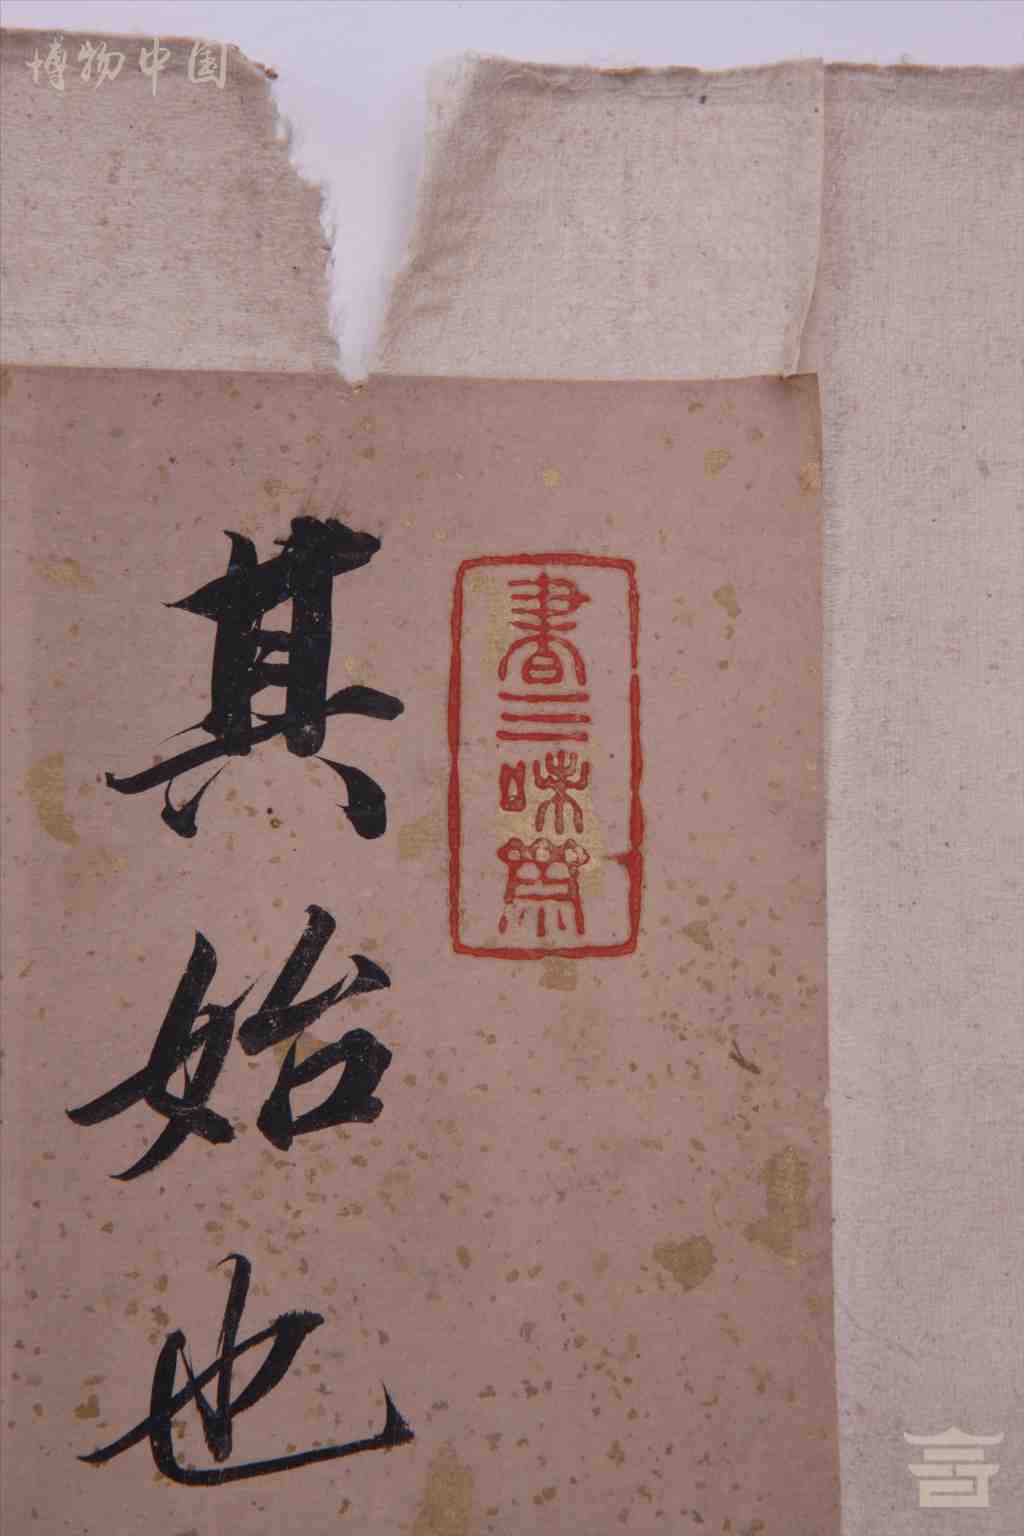 博物中国
書三味齋
其始也